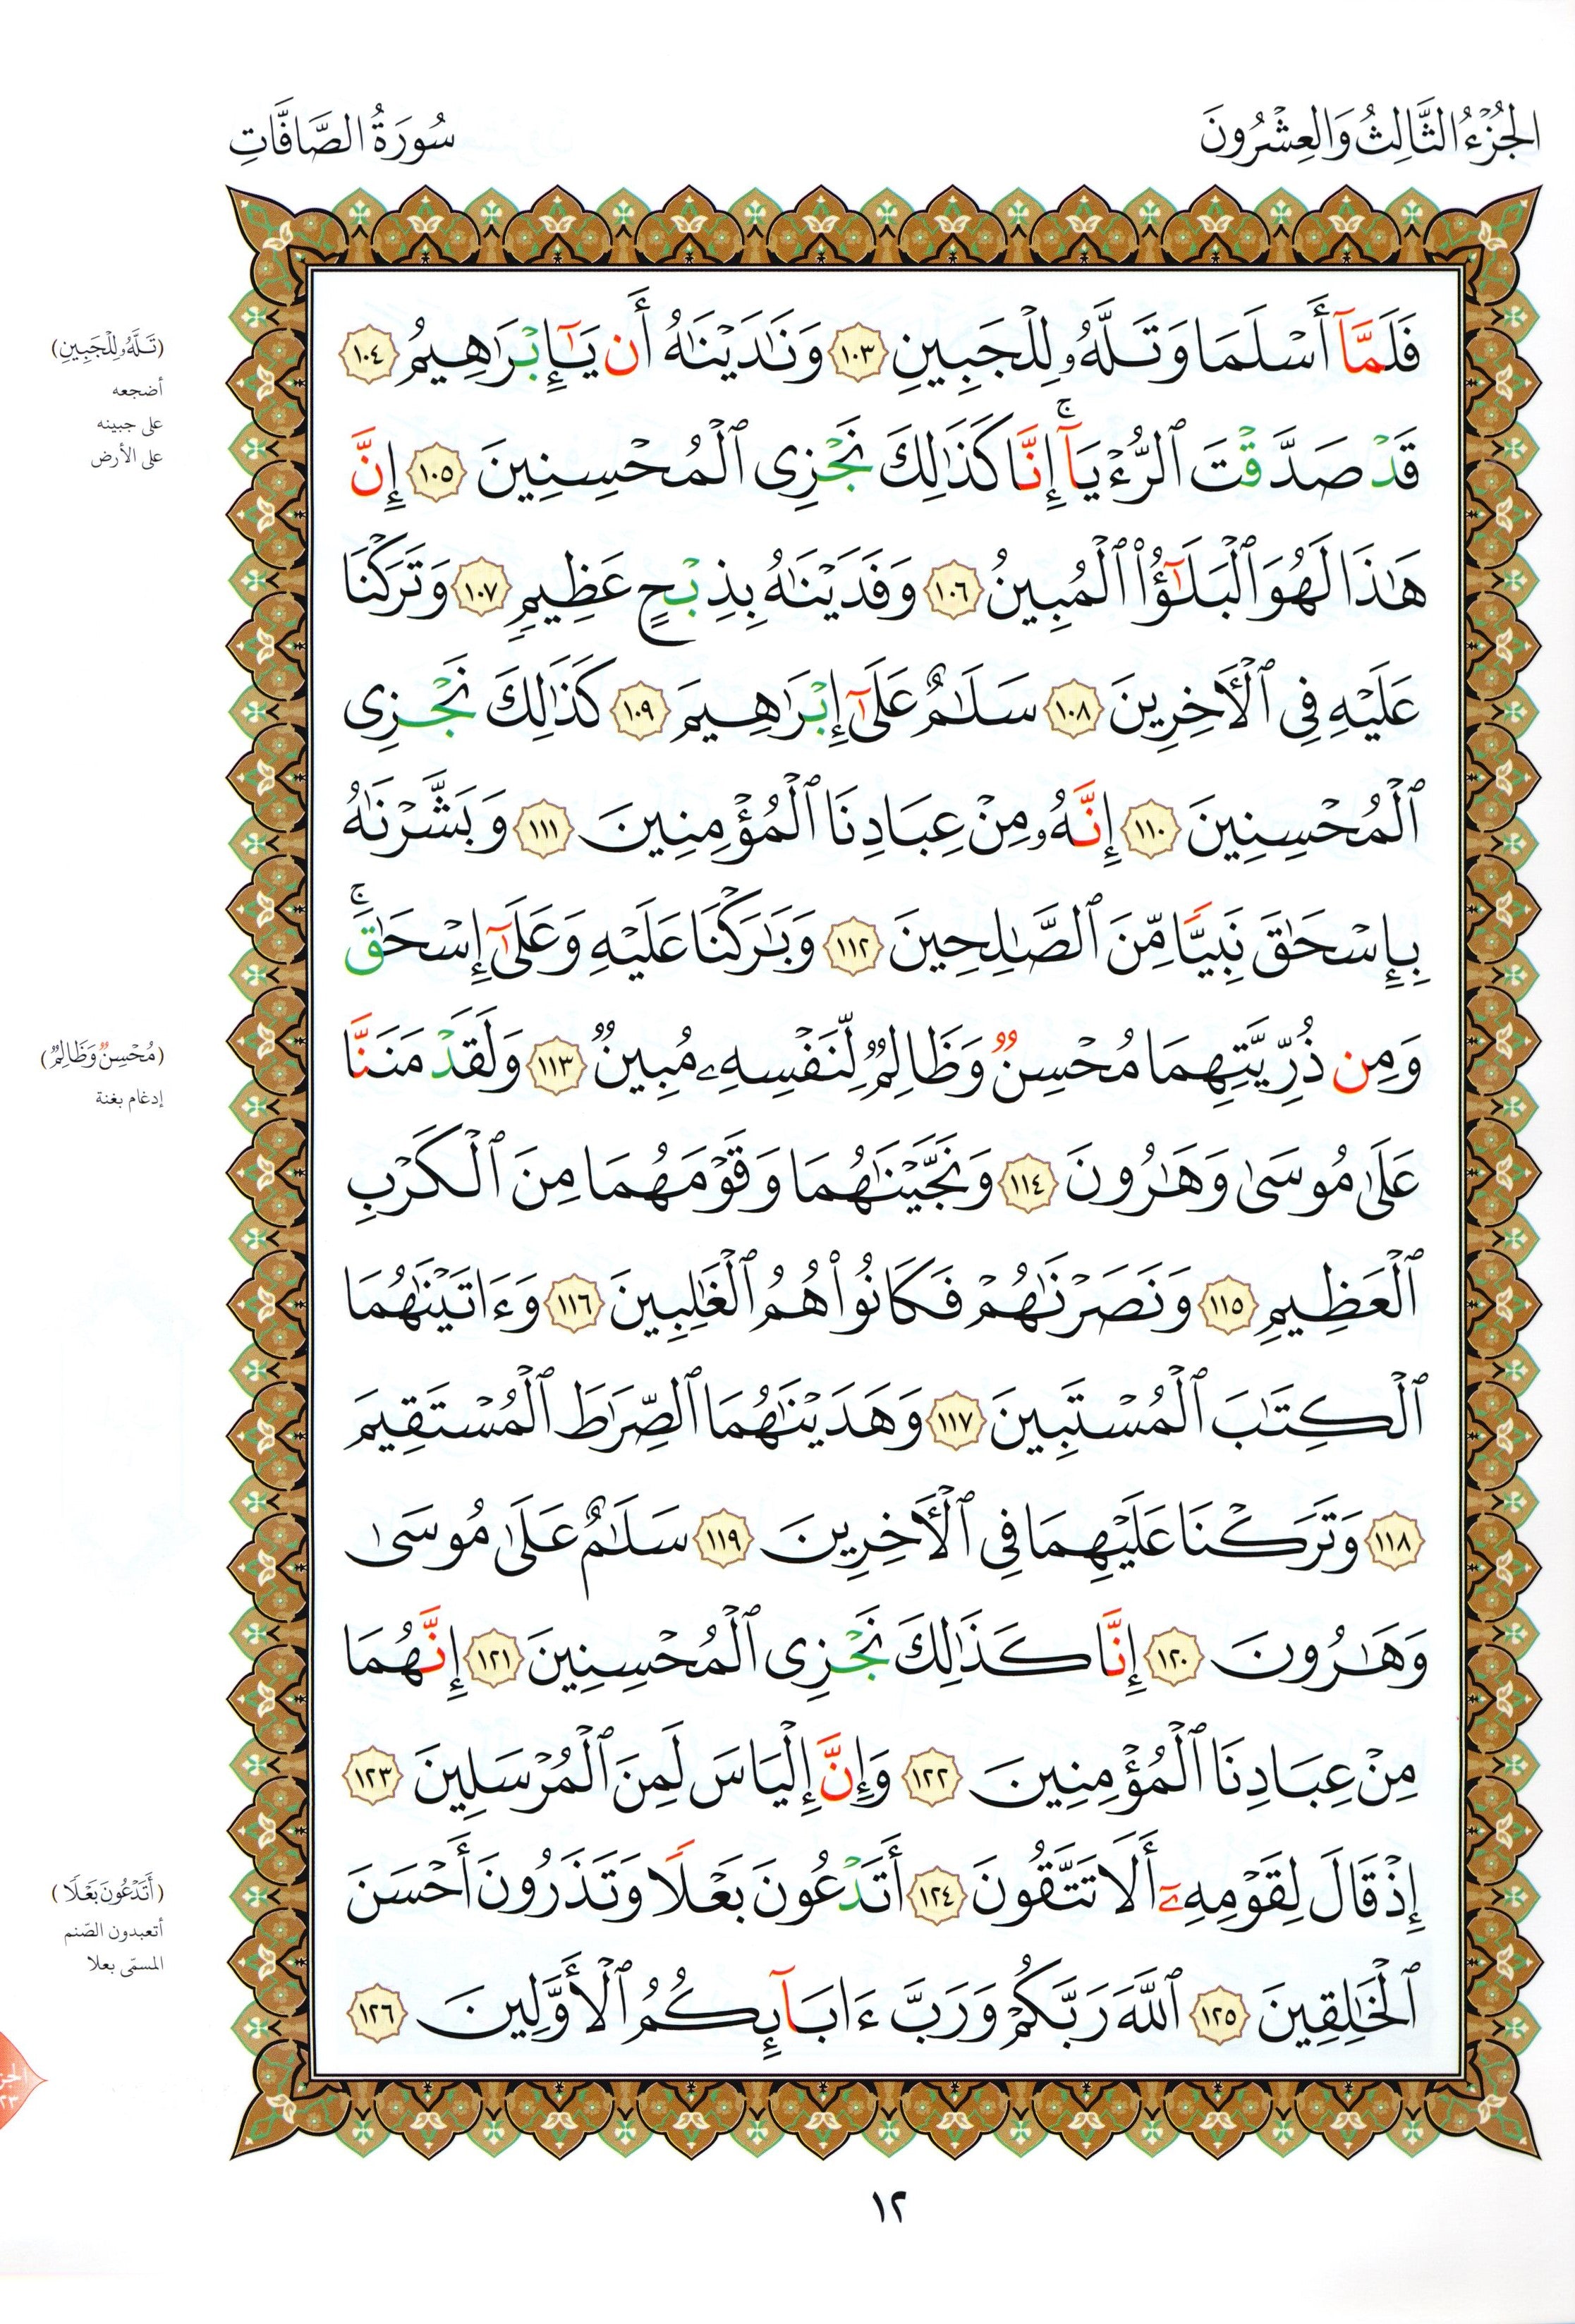 الجُزْءُ الثَّالِثُ وَالعِشْرُونَ
سُورَةُ الصَّافَّاتِ
فَلَمَّآ أَسْلَمَا وَتَلَّهُۥ لِلْجَبِينِ ١٠٣ وَنَٰدَيْنَٰهُ أَن يَٰٓإِبْرَٰهِيمُ ١٠٤
قَدْ صَدَّقْتَ ٱلرُّءْيَآ ۚ إِنَّا كَذَٰلِكَ نَجْزِى ٱلْمُحْسِنِينَ ١٠٥ إِنَّ
هَٰذَا لَهُوَ ٱلْبَلَٰٓؤُا۟ ٱلْمُبِينُ ١٠٦ وَفَدَيْنَٰهُ بِذِبْحٍ عَظِيمٍ ١٠٧ وَتَرَكْنَا
عَلَيْهِ فِى ٱلْأٓخِرِينَ ١٠٨ سَلَٰمٌ عَلَىٰٓ إِبْرَٰهِيمَ ١٠٩ كَذَٰلِكَ نَجْزِى
ٱلْمُحْسِنِينَ ١١٠ إِنَّهُۥ مِنْ عِبَادِنَا ٱلْمُؤْمِنِينَ ١١١ وَبَشَّرْنَٰهُ
بِإِسْحَٰقَ نَبِيًّا مِّنَ ٱلصَّٰلِحِينَ ١١٢ وَبَٰرَكْنَا عَلَيْهِ وَعَلَىٰٓ إِسْحَٰقَ ۚ
وَمِن ذُرِّيَّتِهِمَا مُحْسِنٌ وَظَالِمٌ لِّنَفْسِهِۦ مُبِينٌ ١١٣ وَلَقَدْ مَنَنَّا
عَلَىٰ مُوسَىٰ وَهَٰرُونَ ١١٤ وَنَجَّيْنَٰهُمَا وَقَوْمَهُمَا مِنَ ٱلْكَرْبِ
ٱلْعَظِيمِ ١١٥ وَنَصَرْنَٰهُمْ فَكَانُوا۟ هُمُ ٱلْغَٰلِبِينَ ١١٦ وَءَاتَيْنَٰهُمَا
ٱلْكِتَٰبَ ٱلْمُسْتَبِينَ ١١٧ وَهَدَيْنَٰهُمَا ٱلصِّرَٰطَ ٱلْمُسْتَقِيمَ
١١٨ وَتَرَكْنَا عَلَيْهِمَا فِى ٱلْأٓخِرِينَ ١١٩ سَلَٰمٌ عَلَىٰ مُوسَىٰ
وَهَٰرُونَ ١٢٠ إِنَّا كَذَٰلِكَ نَجْزِى ٱلْمُحْسِنِينَ ١٢١ إِنَّهُمَا
مِنْ عِبَادِنَا ٱلْمُؤْمِنِينَ ١٢٢ وَإِنَّ إِلْيَاسَ لَمِنَ ٱلْمُرْسَلِينَ ١٢٣
إِذْ قَالَ لِقَوْمِهِۦٓ أَلَا تَتَّقُونَ ١٢٤ أَتَدْعُونَ بَعْلًا وَتَذَرُونَ أَحْسَنَ
ٱلْخَٰلِقِينَ ١٢٥ ٱللَّهَ رَبَّكُمْ وَرَبَّ ءَابَآئِكُمُ ٱلْأَوَّلِينَ ١٢٦
(تَلَّهُۥ لِلْجَبِينِ)
أضجعه
على جبينه
على الأرض
(مُحْسِنٌ وَظَالِمٌ)
إدغام بغنة
(أَتَدْعُونَ بَعْلًا)
أتعبدون الصّنم
المسمّى بعلا
١٢